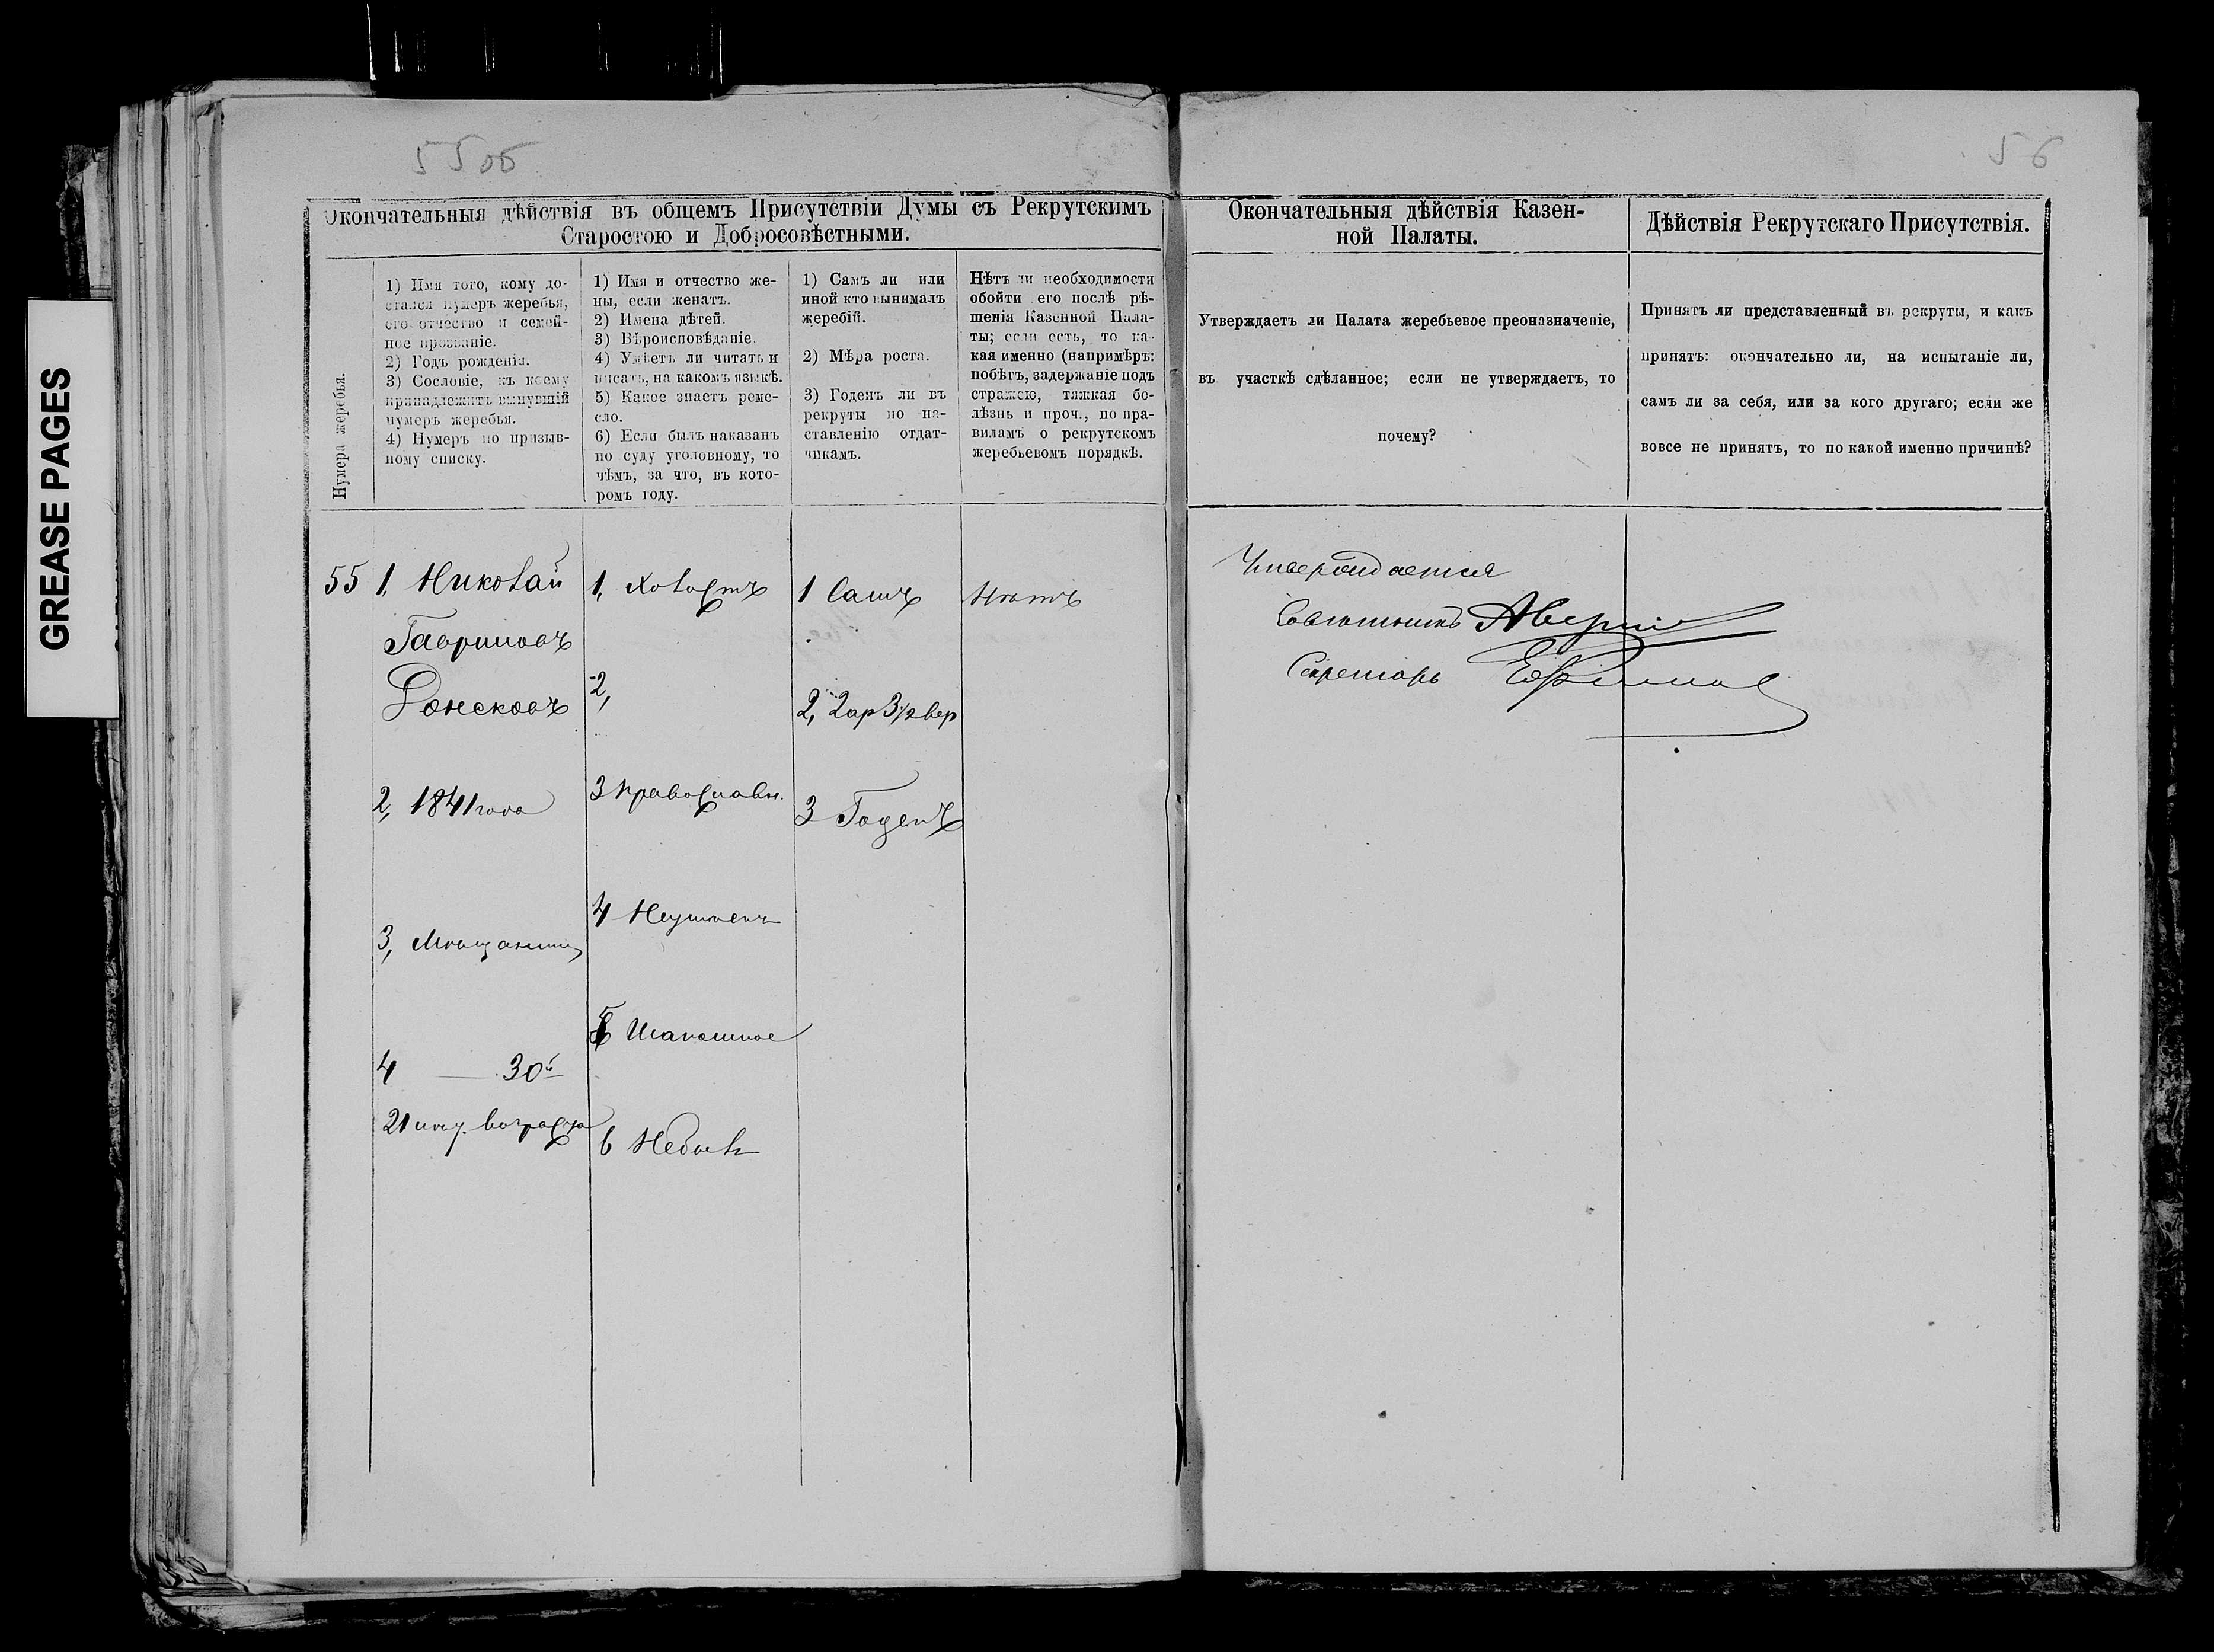 GREASE PAGES
55об
56
Окончательныя дѣйствія въ общемъ Присутствіи Думы съ Рекрутскимъ
Старостою и Добросовѣстными.
Нумера жеребья.
1) Имя того, кому до-
стался нумеръ жеребья,
его отчество и семей-
ное прозваніе.
2) Годъ рожденія.
3) Сословіе, къ коему
принадлежитъ вынувшій
нумеръ жеребья.
4) Нумеръ по призыв-
ному списку.
1) Имя и отчество же-
ны, если женатъ.
2) Имена дѣтей.
3) Вѣроисповѣданіе.
4) Умѣетъ ли читать и
писать, на какомъ языкѣ.
5) Какое знаетъ ремес-
ло.
6) Если былъ наказанъ
по суду уголовному, то
чѣмъ, за что, въ кото-
ромъ году.
1) Самъ ли или
иной кто вынималъ
жеребій.
2) Мѣра роста.
3) Годенъ ли въ
рекруты по на-
ставленію отдат-
чикамъ.
Нѣтъ ли необходимости
обойти его послѣ рѣ-
шенія Казенной Пала-
ты; если есть, то ка-
кая именно (напримѣръ:
побѣгъ, задержаніе подъ
стражею, тяжкая бо-
лѣзнь и проч., по пра-
виламъ о рекрутскомъ
жеребьевомъ порядкѣ.
55
1, Николай
Гавриловъ
Донсковъ
2, 1841 года
3, Мѣщанинъ
4 — 30й
21 возраста
1, Холостъ
2,
3 Православн.
4 Неумѣетъ
5
6 Небылъ
1 Самъ
2, 2 ар 3½ вер
3 Годенъ
Нѣтъ
Окончательныя дѣйствія Казен-
ной Палаты.
Утверждаетъ ли Палата жеребьевое преоназначеніе,
въ участкѣ сдѣланное; если не утверждаетъ, то
почему?
Утверждается
Совѣтникъ
Секретарь Ефимов
Дѣйствія Рекрутскаго Присутствія.
Принятъ ли представленный въ рекруты, и какъ
принятъ: окончательно ли, на испытаніе ли,
самъ ли за себя, или за кого другаго; если же
вовсе не принятъ, то по какой именно причинѣ?